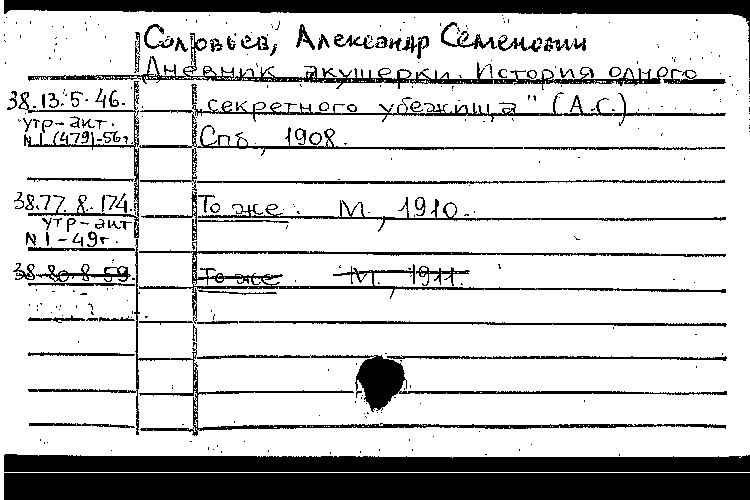 Соловьев, Александр Семенович
Дневник акушерки. История одного
38.13.5.46. секретного убежища" (А.С.)
утр-акт.
N1 (479)-56г Спб., 1908.
38.77.8.174. То же. М., 1910.
утр-акт
N1-49г.
38.80.8.59. То же М., 1911.